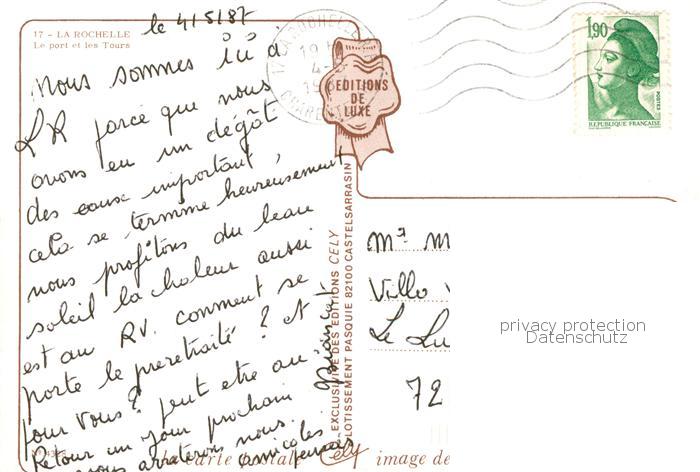 17 - LA ROCHELLE
Le port et les Tours
le 4/5/87
Nous sommes ici à
LR parce que nous
avons eu un dégât
des eaux important,
cela se termine heureusement
nous profitons du beau
soleil la chaleur aussi
est au RV. comment se
porte le preretraité ? et
pour vous ? peut etre au
Retour un jour prochain
nous arreterons nous.
amicales pensées
EDITIONS
DE
LUXE
EXCLUSIVITÉ DES EDITIONS CELY
LOTISSEMENT PASQUIE 82100 CASTELSARRASIN
1,90
POSTES
REPUBLIQUE FRANÇAISE
Villa
Le Lu
72
privacy protection
Datenschutz
la carte postale Cely image de